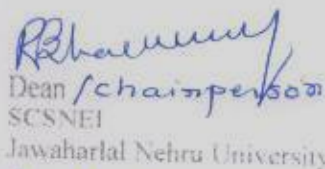 Dean /Chairperson
SCSNEI
Jawaharlal Nehru University